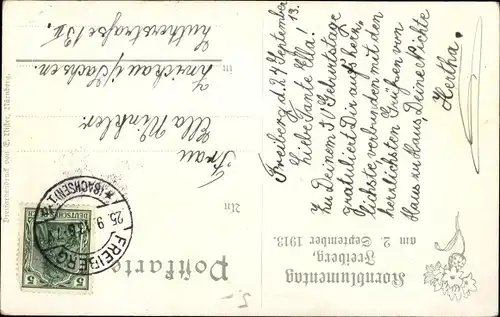 Kornblumentag
Freiberg,
am 2. September 1913.
Postkarte
An
Frau
Ella Winkler.
in Zwickau i/Sachsen.
Lutherstraße 13 II.
Freiberg, d. 24 September 13.
Liebe Tante Ella!
Zu Deinem 50 Geburtstage
gratuliert Dir aufs herz-
lichste, verbunden mit den
herzlichsten Grüßen von
Haus zu Haus, Deine Nichte
Hertha.
FREIBERG
(SACHSEN) 1
25 9 13
DEUTSCHES REICH
5 5
Dreifarbendruck von E. Nister, Nürnberg.
5.-